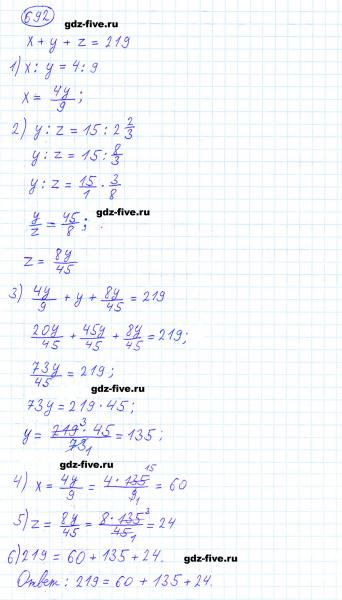 692
gdz-five.ru
x + y + z = 219
1) x : y = 4 : 9
x = 4y/9 ;
2) y : z = 15 : 2 2/3
y : z = 15 : 8/3
y : z = 15/1 · 3/8
gdz-five.ru
y/z = 45/8 ;
z = 8y/45
3) 4y/9 + y + 8y/45 = 219
20y/45 + 45y/45 + 8y/45 = 219;
gdz-five.ru
73y/45 = 219 ;
gdz-five.ru
73y = 219 · 45 ;
y = 219 3 · 45/73 1 = 135 ;
gdz-five.ru
4) x = 4y/9 = 4 · 135 15/9 1 = 60
gdz-five.ru
5) z = 8y/45 = 8 · 135 3/45 1 = 24
6) 219 = 60 + 135 + 24.
gdz-five.ru
Ответ : 219 = 60 + 135 + 24.